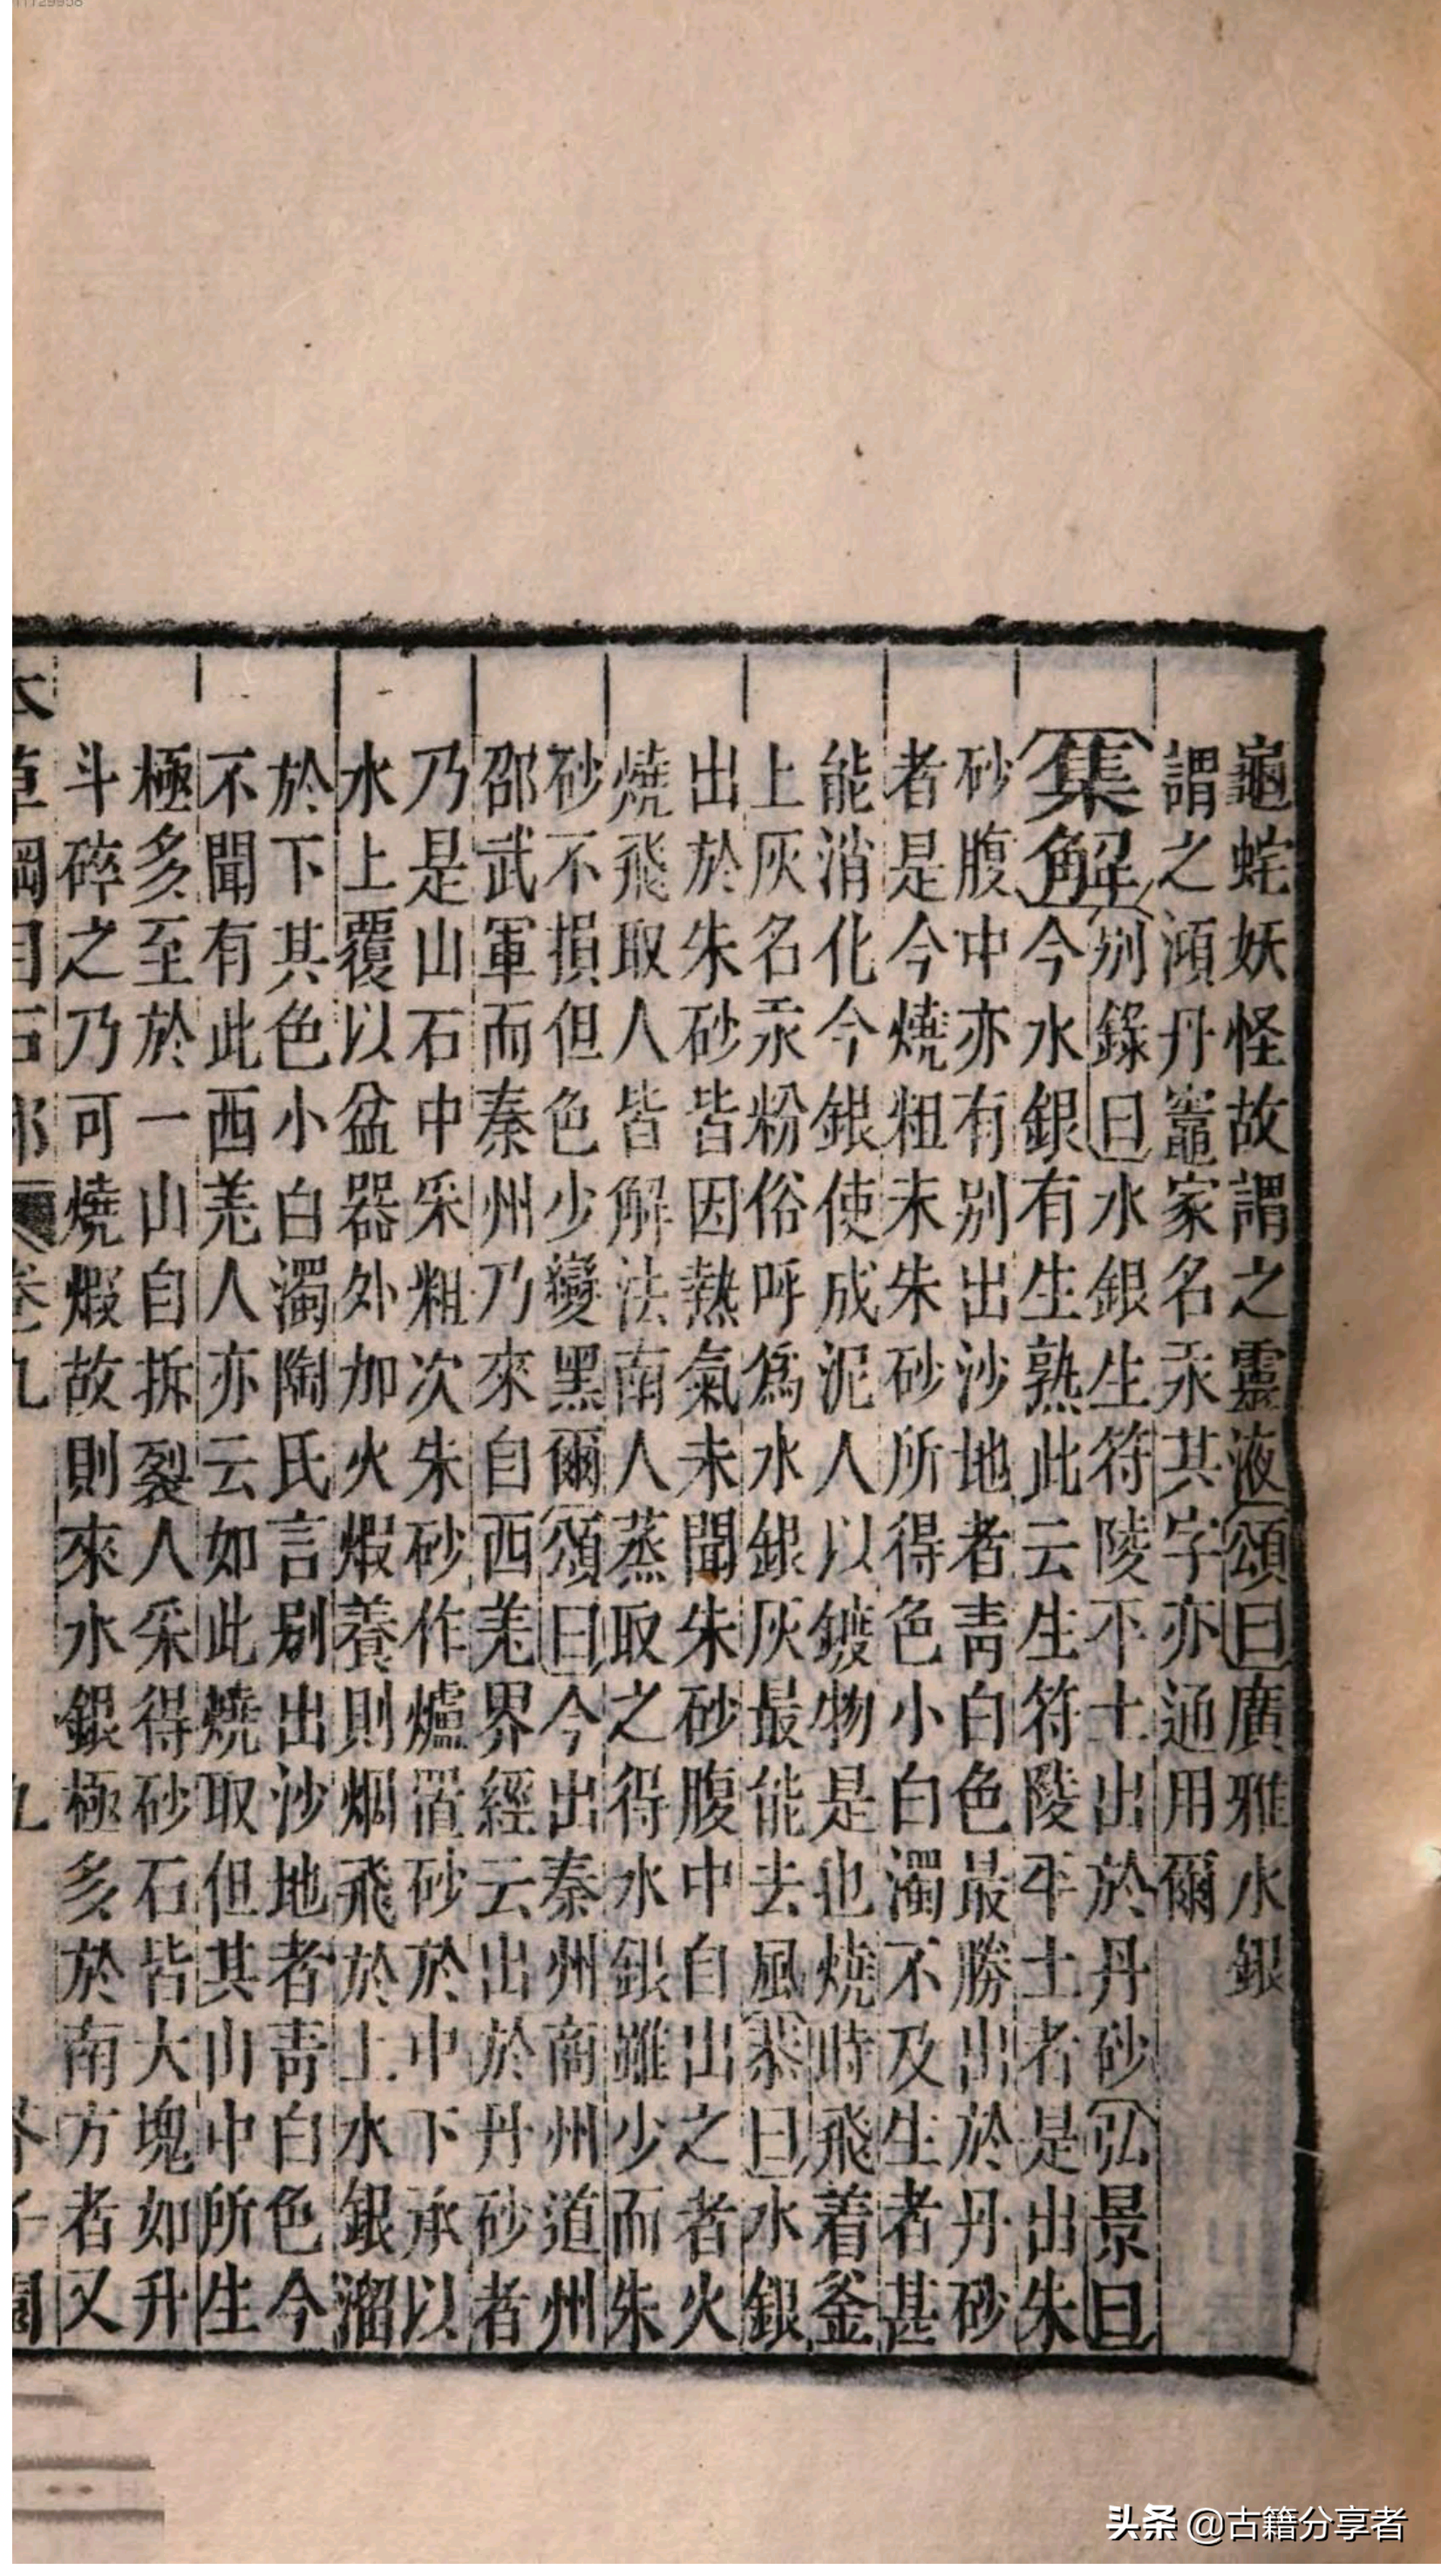 龜蛇妖怪故謂之靈液頌曰廣雅水銀
謂之澒丹竈家名汞其字亦通用爾
集解別錄曰水銀生符陵不土出於丹砂弘景曰
今水銀有生熟此云生符陵平土者是出朱
砂腹中亦有別出沙地者青白色最勝出於丹砂
者是今燒粗末朱砂所得色小白濁不及生者甚
能消化今銀使成泥人以鍍物是也燒時飛着釜
上灰名汞粉俗呼爲水銀灰最能去風恭曰水銀
出於朱砂皆因熱氣未聞朱砂腹中自出之者火
燒飛取人皆解法南人蒸取之得水銀雖少而朱
砂不損但色少變黑爾頌曰今出秦州商州道州
邵武軍而秦州乃來自西羌界經云出於丹砂者
乃是山石中采粗次朱砂作爐置砂於中下承以
水上覆以盆器外加火煅養則烟飛於上水銀溜
於下其色小白濁陶氏言別出沙地者青白色今
不聞有此西羌人亦云如此燒取但其山中所生
極多至於一山自拆裂人采得砂石皆大塊如升
斗碎之乃可燒煅故則來水銀極多於南方者又
本草綱目石部 卷九 九 芥子園
头条 @古籍分享者